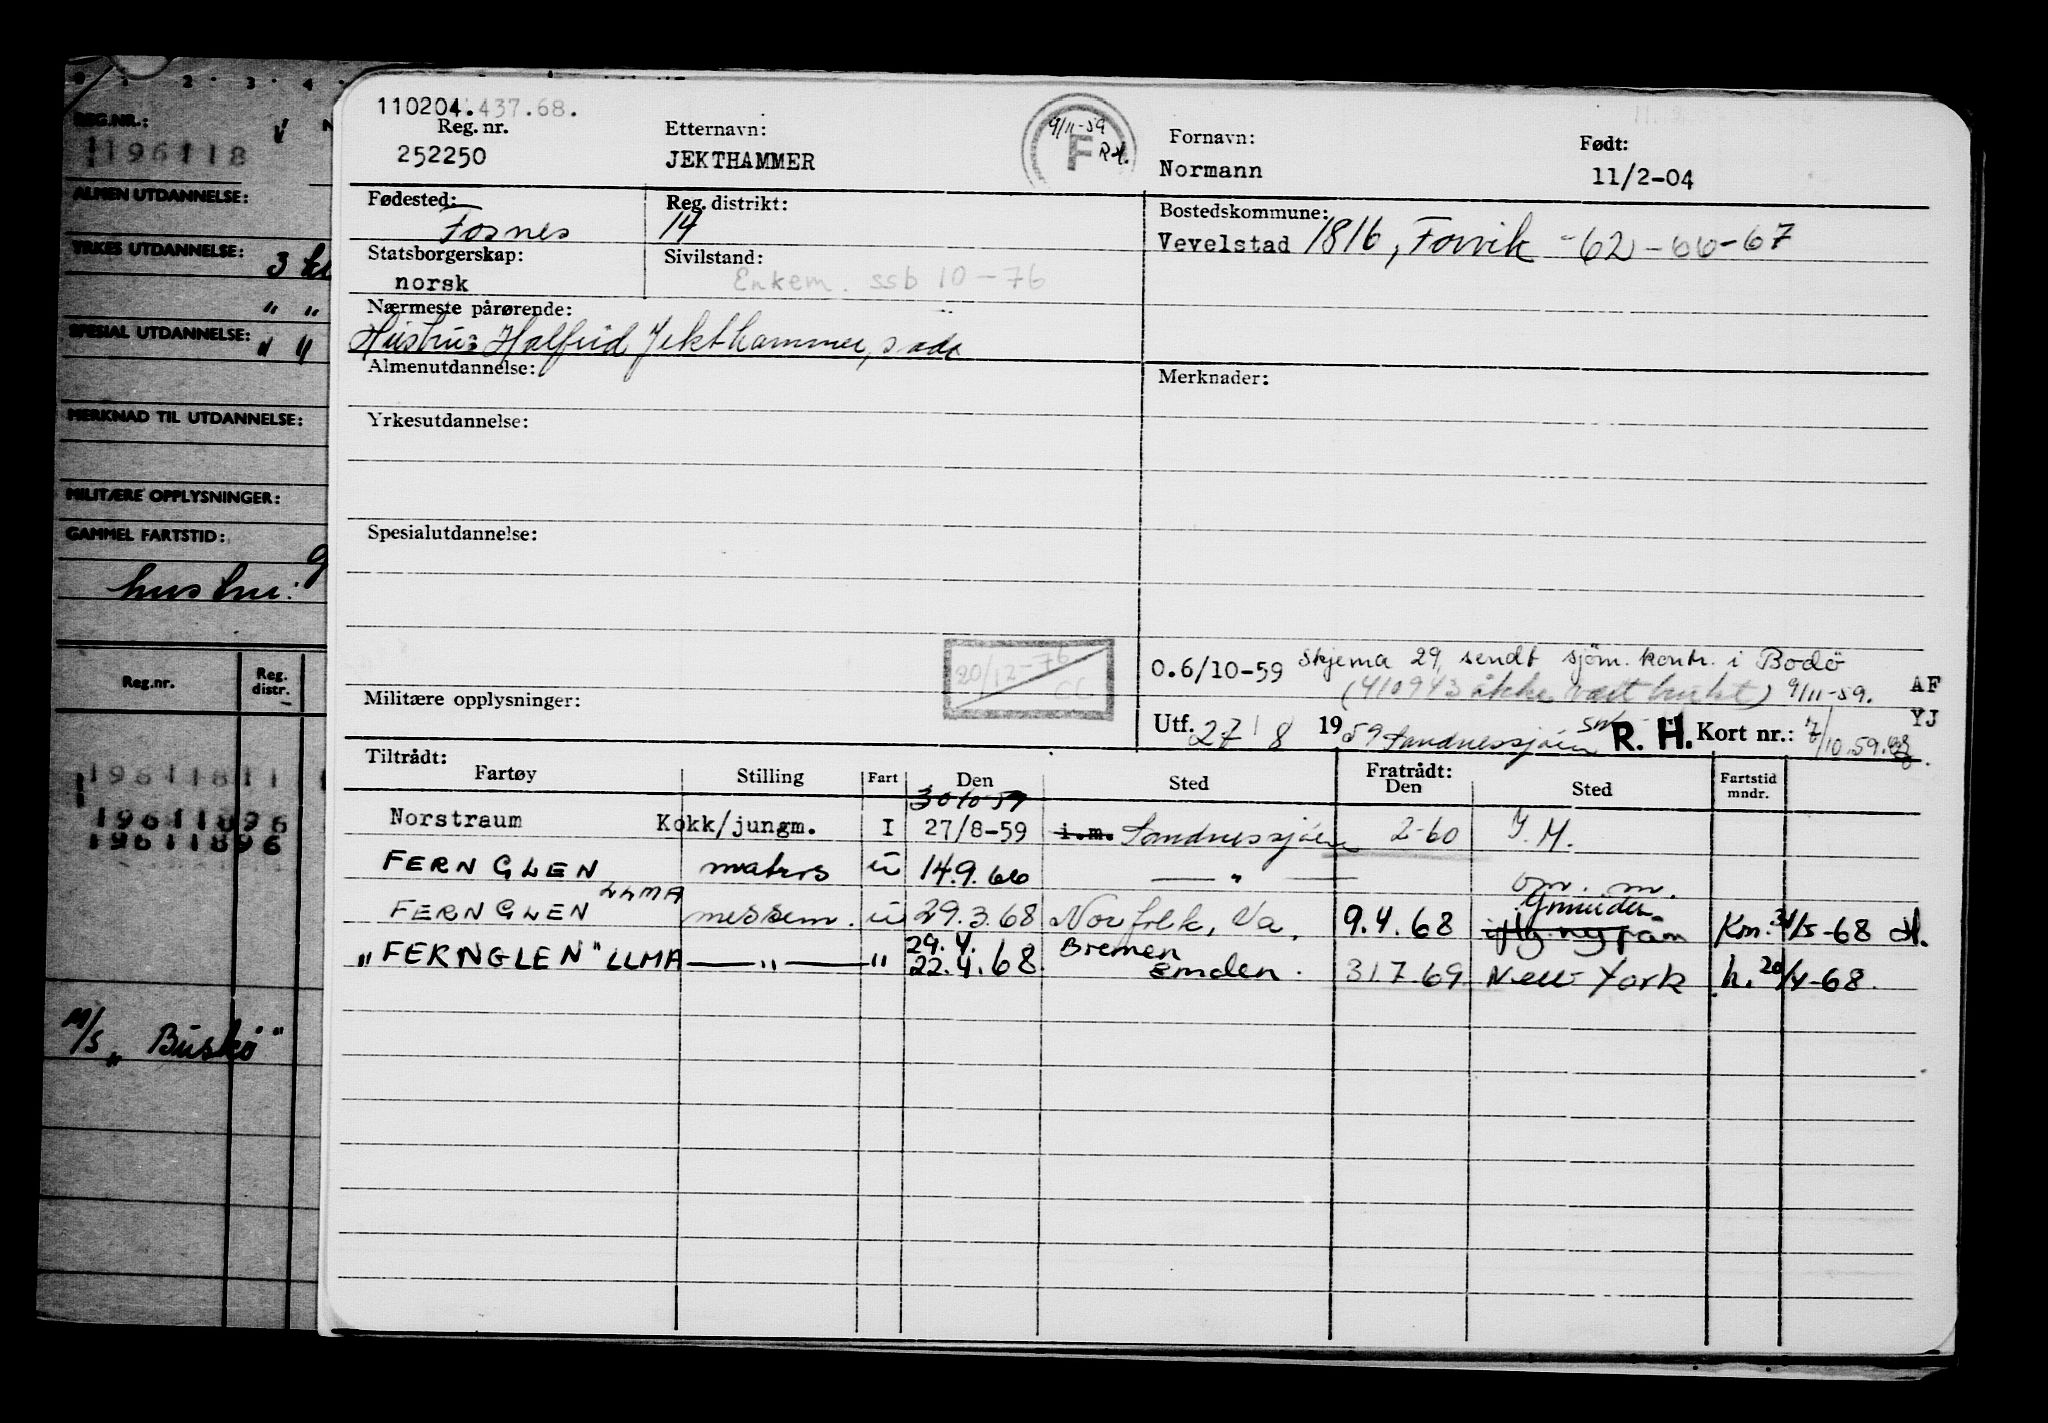 0 1 2 3 4
REG.NR.:
196118
ALMEN UTDANNELSE:
YRKES UTDANNELSE: 3 kl
" "
SPESIAL UTDANNELSE: " "
MERKNAD TIL UTDANNELSE:
MILITÆRE OPPLYSNINGER:
GAMMEL FARTSTID:
hustru:
Reg.nr. Reg. distr.
19611811
19611896
19611896
M/S "Buskø"
110204.437.68.
Reg. nr. Etternavn: Fornavn: Født:
252250 JEKTHAMMER Normann 11/2-04
9/11-59
F R.H.
Fødested: Reg. distrikt: Bostedskommune:
Fosnes 14 Vevelstad 1816, Forvik -62-66-67
Statsborgerskap: Sivilstand:
norsk Enkem. ssb 10-76
Nærmeste pårørende:
Hustru: Halfrid Jekthammer, s adr
Almenutdannelse: Merknader:
Yrkesutdannelse:
Spesialutdannelse:
20/12-76 CC
0.6/10-59 Skjema 29, sendt sjøm. kontr. i Bodö
(410943 ikke vært brukt) 9/11-59. AF
Militære opplysninger: YJ
Utf. 27/8 1959 Sandnessjøen R. H. Kort nr.: 7/10.59.
Tiltrådt: Fratrådt:
Fartøy Stilling Fart Den Sted Den Sted Fartstid mndr.
30 10-59
Norstraum Kokk/jungm. I 27/8-59 i.m. Sandnessjøen 2-60 Y.M.
FERNGLEN matros u 14.9.66 — " — om. m.
FERNGLEN LLMA messem. u 29.3.68 Norfolk, Va. 9.4.68 Km. 31/5-68 H.
29.4. Bremen
"FERNGLEN" LLMA — " — " 22.4.68 Emden. 31.7.69 New York h. 20/4-68.